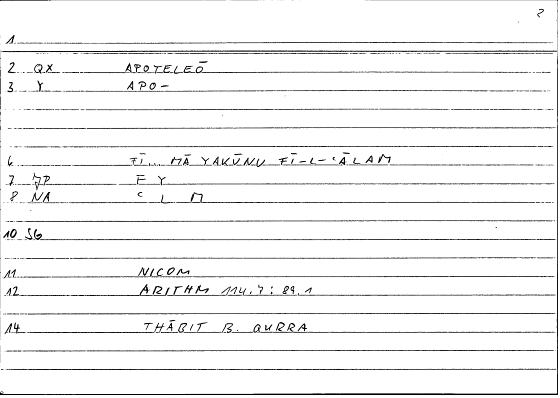 2
1
2 QX APOTELEŌ
3 Y APO-
6 FĪ... MĀ YAKŪNU FĪ-L-ʿĀLAM
7 JP F Y
8 NA ʿ L M
10 SG
11 NICOM
12 ARITHM 114.7: 89.1
14 THĀBIT B. QURRA